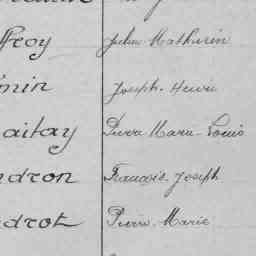 ffroy Julien Mathurin
Joseph Henri
aitay Pierre Marie Louis
dron François Joseph
drot Pierre Marie